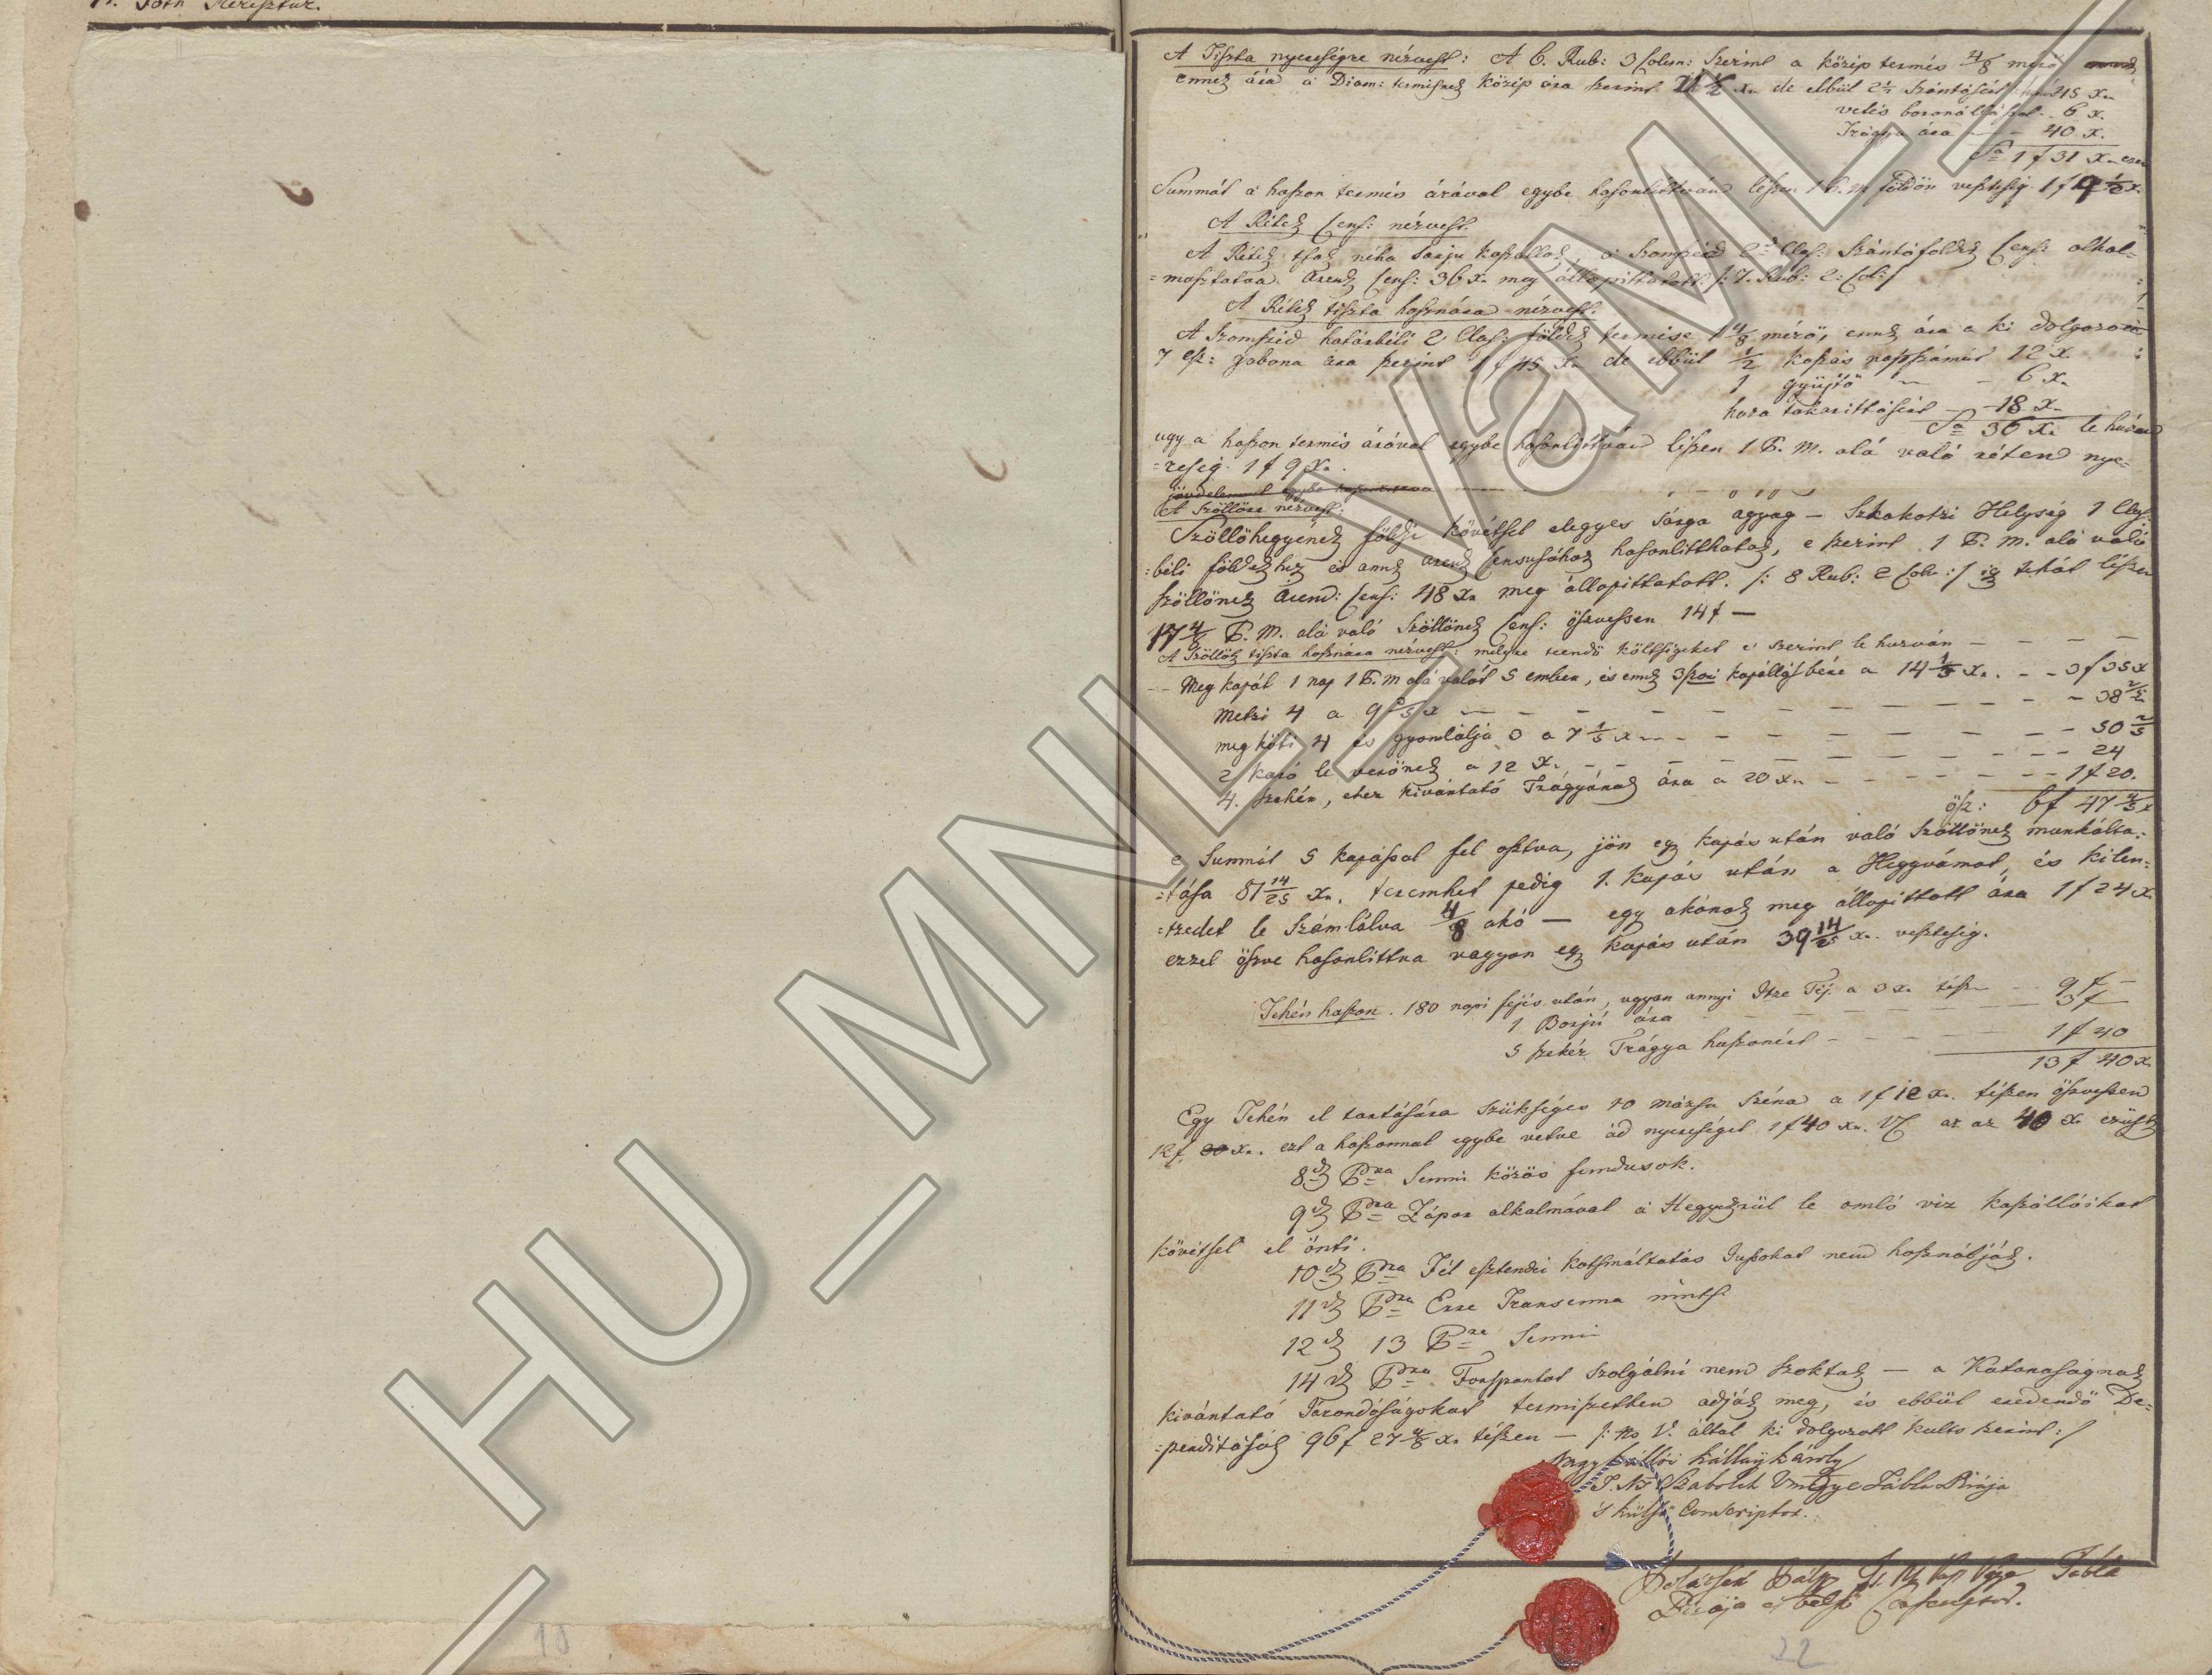 N. Toth Keresztur.
A Tiszta nyereségre nézvést: A 6. Rub: 3 Colum: Szerint a közép termés 4/8 mérő
ennek ára a Diam: termésnek közép ára szerint 21 1/2 x. de ebbül 2 1/2 Szántásért 45 x.
vetés boronálással 6 x.
Trágya ára — — 40 x.
Sa 1 f 31 x. ezen
Summát a haszon termés árával egybe hasonlitván lészen 1 P. M. földön vesteség 1 f 9 1/2 x.
A Rétek Cens: nézvést.
A Rétek tsak néha sarju kaszállok, a Szomszéd 2k Clas: Szántóföldek Cens: alkal=
=maztatva Arend Cens: 36 x. meg állapittatott /: 7. Rub: 2: Col: /
A Rétek tiszta hasznára nézvést.
A Szomszéd határbéli 2 Clas: földek termése 1 4/8 mérő, ennek ára a ki dolgozott
7 esz: gabona ára szerint 1 f 45 x. de ebbül 1/2 kaszás napszámért 12 x.
1 gyüjtő — — 6 x.
haza takarittásért — 18 x.
Sa 36 x. le huzván
ugy a haszon termés árával egybe hasonlittván lészen 1 P. M. alá való réten nye=
=reség 1 f 9 x.
A Szőllőre nézvést:
Szőllőhegyének földje kövétsel elegyes sárga agyag — Szkakotzi Helység 1 Clas:
=béli földekhez és annak arend Censusához hasonlitthatok, e szerint 1 P. M. alá való
szőllőnek Arend: Cens: 48 x. meg állapittatott. /: 8 Rub: 2 Colu: / ig tehát lészen
17 4/8 P. M. alá való Szőllőnek Cens: öszvessen 14 f —
A Szőllők tiszta hasznára nézvést: melyre teendő költségeket e szerint le huzván — — — —
Meg kapál 1 nap 1 P. M alá valót 5 ember, és ennek 3szori kapállás bére a 14 1/5 x. - - 3 f 35 x
Metzi 4 a 9 3/5 x — — — — — — — 38 2/5
meg köti 4 és gyomlálja 3 a 7 1/5 x — — — — — — 50 2/5
2 karó le verőnek a 12 x. — — — — — — 24
4. szekér, ehez kivántató Trágyának ára a 20 x. — — — — — 1 f 20.
ösz: 6 f 47 4/5 x
e Summát 5 kapással fel osztva, jön egy kapás után való Szőllőnek munkálta=
=tása 81 14/25 x. teremhet pedig 1. kapás után a Hegyvámot, és kilen=
=tzedet le Számlálva 4/8 akó — egy akónak meg állapittott ára 1 f 24 x
ezzel öszve hasonlittva vagyon egy kapás után 39 14/25 x. vesteség.
Tehén haszon. 180 napi fejés után, ugyan annyi Itze Tej a 3 x. tész — 9 f —
1 Borjú ára — — — — — 3 f —
5 szekér Trágya haszonért — — — 1 f 40
13 f 40 x
Egy Tehén el tartására szükséges 10 mázsa Széna a 1 f 12 x. tészen öszvessen
12 f x. ezt a haszonnal egybe vetve ád nyereséget 1 f 40 x. az az 40 x ezüst
8k Pra Semmi közös fundusok.
9k Pra Zápor alkalmával a Hegyekrül le omló viz kaszállóikat
kövétsel el önti.
10k Pra Fél esztendei kotsmáltatás Jussokat nem használják.
11k Pra Erre Transenna nints
12k 13 Pra Semmi
14k Pra Forspontot Szolgálni nem szoktak — a Katonaságnak
kivántató Porondóságokat termiszetben adják meg, és ebbül eredendő De=
=penditások 96 f 27 4/8 x. tészen — /: No V. által ki dolgozott kults szerint: /
Nagy Kállói Kállay Károly
T. Ns Szabolch Vmegye Tábla Birája
s külső Conscriptor.
Tábla
Birája és belső Conscriptor.
10
22
HU_MNL_VaML_